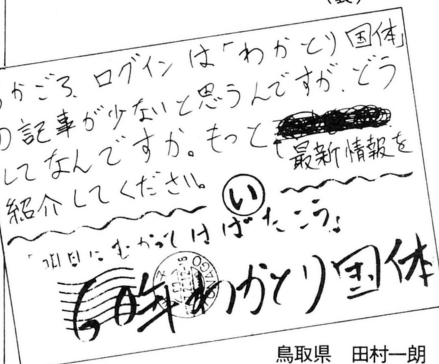 かごろ、ログインは「わかとり国体」
の記事が少ないと思うんですが、どう
してなんですか。もっと
最新情報を
紹介してください。
い
にむかってはばたこう」
60年わかとり国体
鳥取県 田村一朗